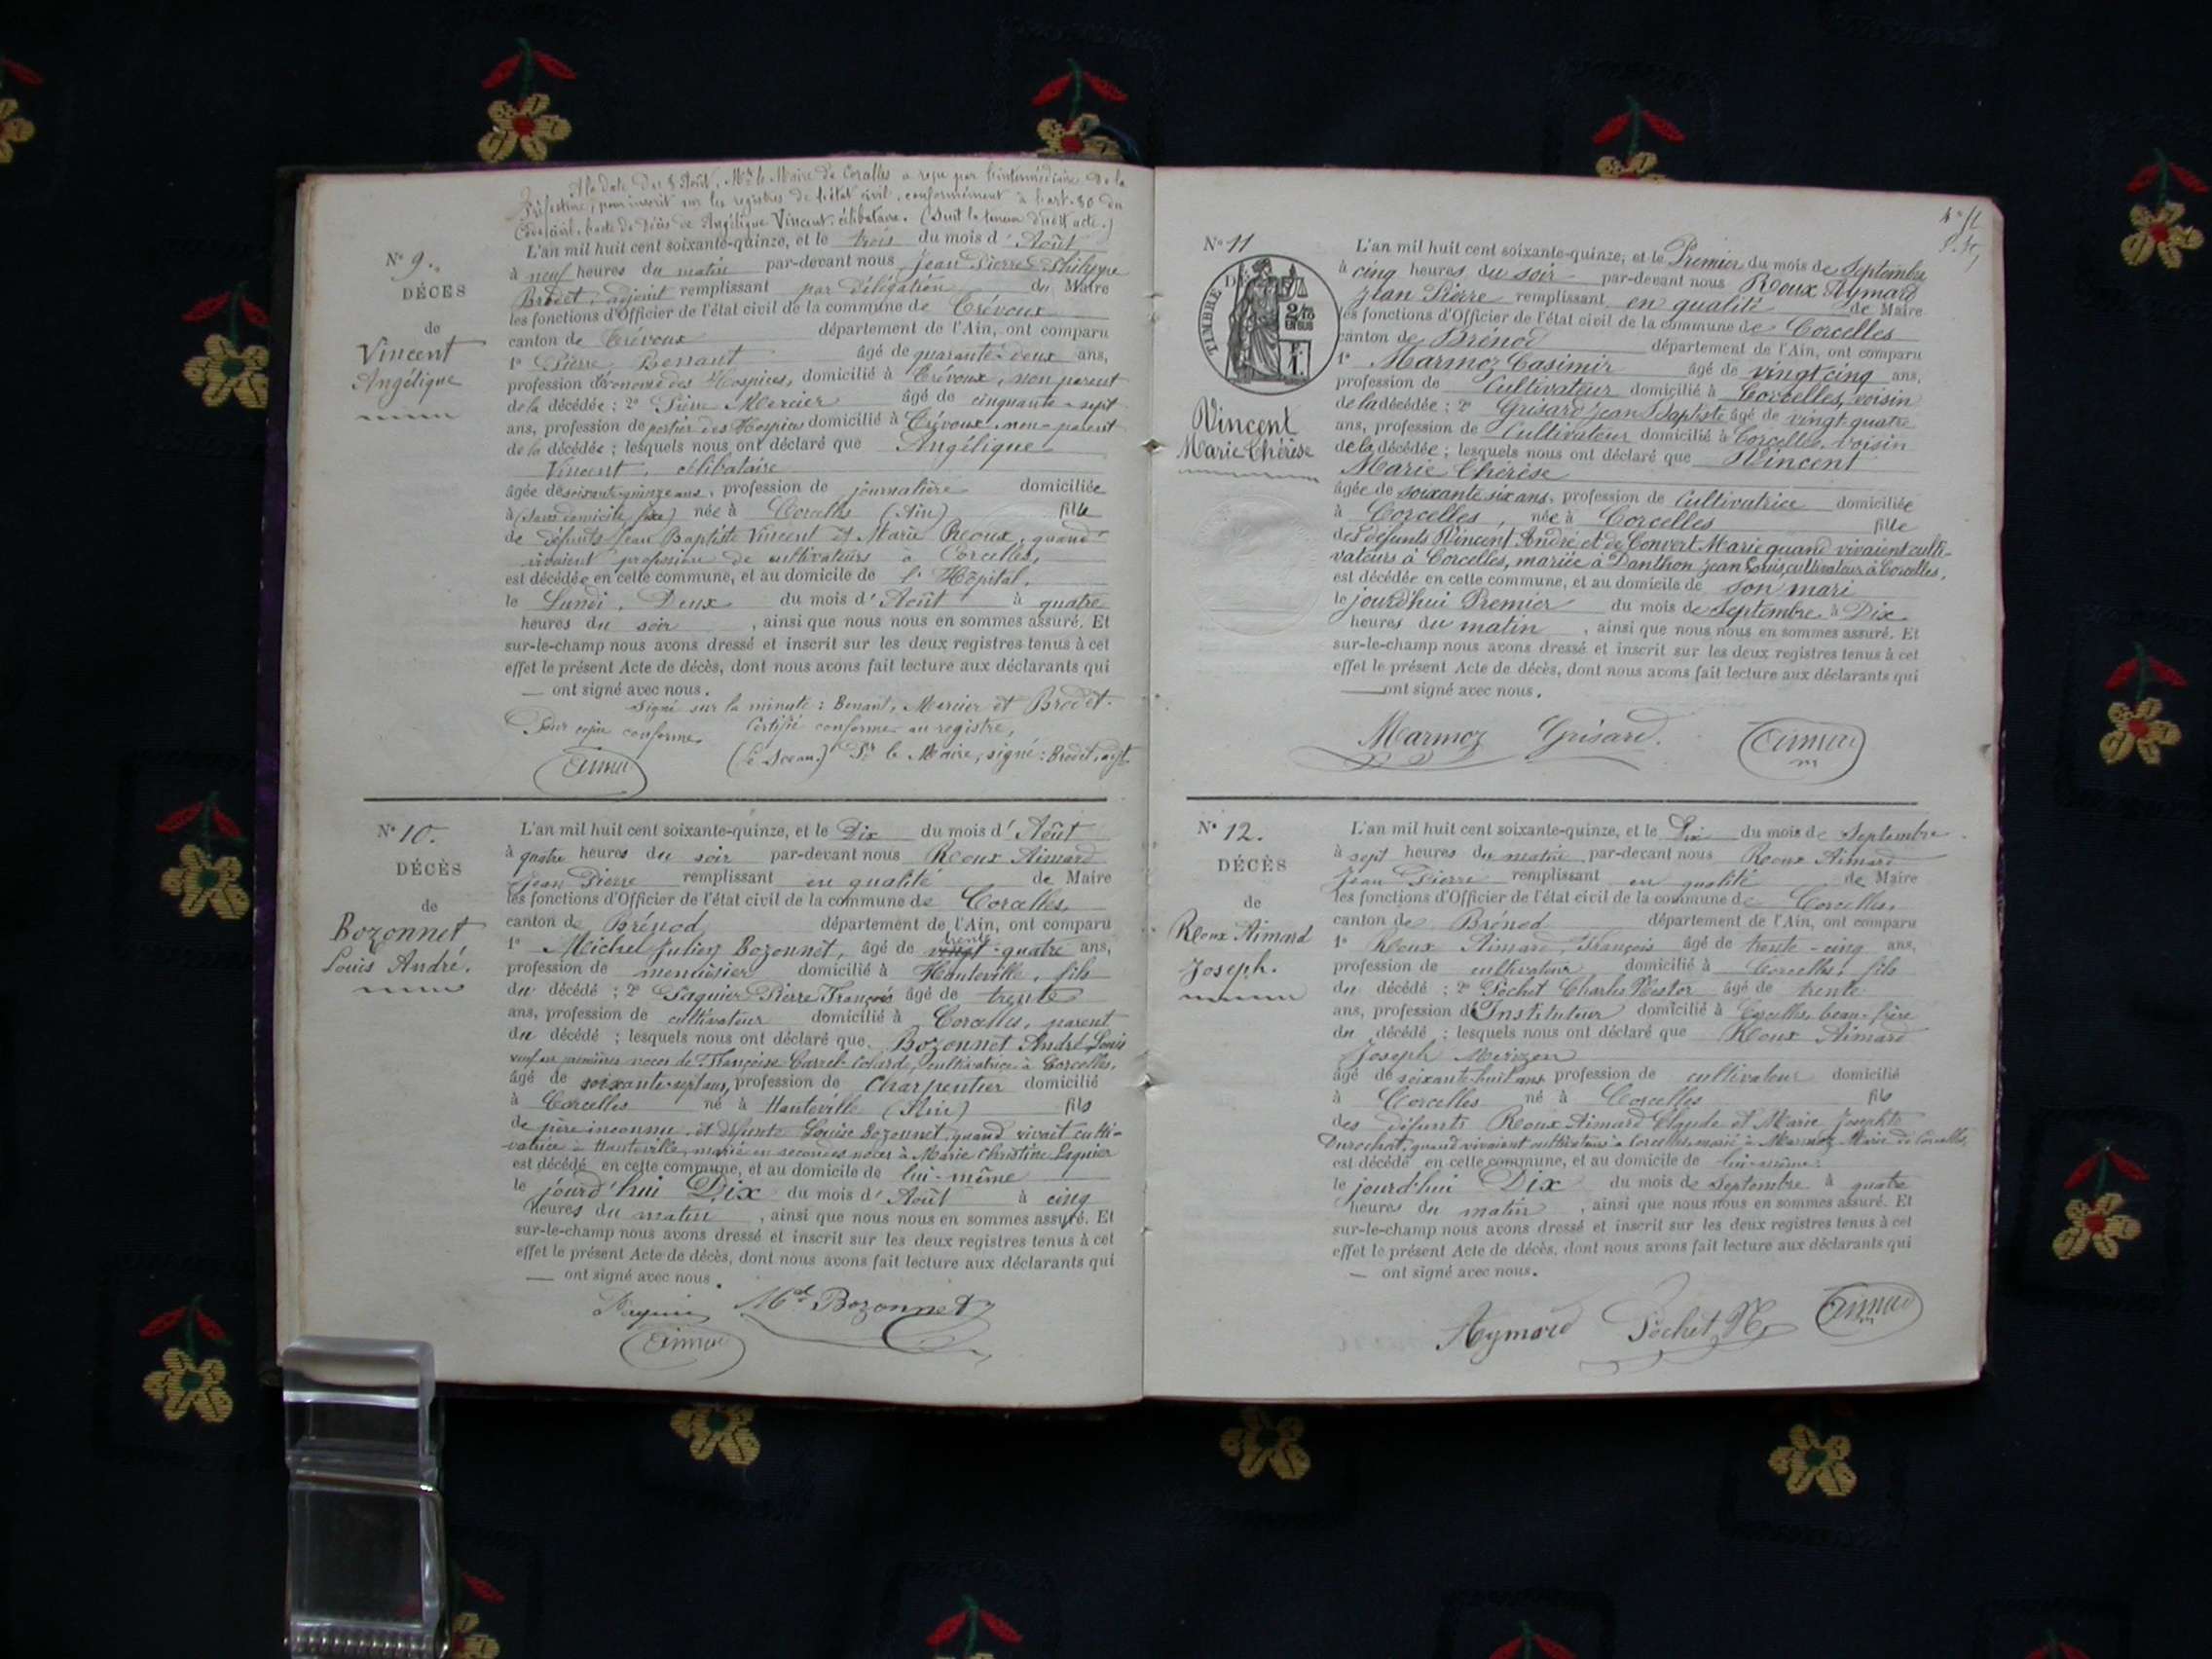 A la date du 8 Août, Mr le Maire de Corcelles a reçu par l'intermédiaire de la
Préfecture, pour inscrit sur les registres de l'état civil, conformément à l'art. 80 du
Code civil, l'acte de décès de Angélique Vincent, célibataire. (Suit la teneur dudit acte.)
N° 9.
DÉCÈS
de
Vincent
Angélique
L'an mil huit cent soixante-quinze, et le trois du mois d'Août
à neuf heures du matin par-devant nous Jean Pierre Philippe
Brodet, adjoint remplissant par délégation du Maire
les fonctions d'Officier de l'état civil de la commune de Trévoux
canton de Trévoux département de l'Ain, ont comparu
1° Pierre Benant âgé de quarante-deux ans,
profession d'économe des Hospices, domicilié à Trévoux, non parent
de la décédée ; 2° Pierre Mercier âgé de cinquante-sept
ans, profession de portier des Hospices domicilié à Trévoux, non-parent
de la décédée ; lesquels nous ont déclaré que Angélique
Vincent, célibataire
âgée de soixante-quinze ans, profession de journalière domiciliée
à (sans domicile fixe) née à Corcelles (Ain) fille
de défunts Jean Baptiste Vincent et Marie Reoux, quand
vivaient profession de cultivateurs à Corcelles,
est décédée en cette commune, et au domicile de l'Hôpital,
le Lundi, Deux du mois d'Août à quatre
heures du soir , ainsi que nous nous en sommes assuré. Et
sur-le-champ nous avons dressé et inscrit sur les deux registres tenus à cet
effet le présent Acte de décès, dont nous avons fait lecture aux déclarants qui
— ont signé avec nous.
Signé sur la minute : Benant, Mercier et Brodet.
Pour copie conforme Certifié conforme au registre,
Aimar (Le Sceau.) Pr le Maire, signé : Brodet, adjt
N° 10.
DÉCÈS
de
Bozonnet
Louis André.
L'an mil huit cent soixante-quinze, et le Dix du mois d'Août
à quatre heures du soir par-devant nous Reoux Aimard
Jean Pierre remplissant en qualité de Maire
les fonctions d'Officier de l'état civil de la commune de Corcelles,
canton de Brénod département de l'Ain, ont comparu
trente
1° Michel Julien Bozonnet, âgé de vingt-quatre ans,
profession de menuisier domicilié à Hauteville, fils
du décédé ; 2° Paquier Pierre François âgé de trente
ans, profession de cultivateur domicilié à Corcelles, parent
du décédé ; lesquels nous ont déclaré que Bozonnet André Louis
veuf en premières noces de Françoise Carrel-Colard, cultivatrice à Corcelles,
âgé de soixante-sept ans, profession de Charpentier domicilié
à Corcelles né à Hauteville (Ain) fils
de père inconnu et défunte Louise Bozonnet, quand vivait culti-
vatrice à Hauteville, marié en secondes noces à Marie Christine Paquier
est décédé en cette commune, et au domicile de lui-même
le jourd'hui Dix du mois d'Août à cinq
heures du matin , ainsi que nous nous en sommes assuré. Et
sur-le-champ nous avons dressé et inscrit sur les deux registres tenus à cet
effet le présent Acte de décès, dont nous avons fait lecture aux déclarants qui
— ont signé avec nous.
Paquier Mel Bozonnet
Aimar
N° 11
TIMBRE
2/10
EN SUS
Vincent
Marie Thérèse
L'an mil huit cent soixante-quinze, et le Premier du mois de Septembre
à cinq heures du soir par-devant nous Reoux Aymard
Jean Pierre remplissant en qualité de Maire
les fonctions d'Officier de l'état civil de la commune de Corcelles
canton de Brénod département de l'Ain, ont comparu
1° Marmoz Casimir âgé de vingt cinq ans,
profession de Cultivateur domicilié à Corcelles, voisin
de la décédée ; 2° Grisard Jean Baptiste âgé de vingt-quatre
ans, profession de Cultivateur domicilié à Corcelles, voisin
de la décédée ; lesquels nous ont déclaré que Vincent
Marie Thérèse
âgée de soixante six ans, profession de Cultivatrice domiciliée
à Corcelles, née à Corcelles fille
des défunts Vincent André et de Convert Marie quand vivaient culti-
vateurs à Corcelles, mariée à Danthon Jean Louis, cultivateur à Corcelles,
est décédée en cette commune, et au domicile de son mari
le jourd'hui Premier du mois de Septembre à Dix
heures du matin , ainsi que nous nous en sommes assuré. Et
sur-le-champ nous avons dressé et inscrit sur les deux registres tenus à cet
effet le présent Acte de décès, dont nous avons fait lecture aux déclarants qui
— ont signé avec nous.
Marmoz Grisard. Aimar
N° 12.
DÉCÈS
de
Reoux Aimard
Joseph.
L'an mil huit cent soixante-quinze, et le Dix du mois de Septembre
à sept heures du matin par-devant nous Reoux Aimard
Jean Pierre remplissant en qualité de Maire
les fonctions d'Officier de l'état civil de la commune de Corcelles,
canton de Brénod département de l'Ain, ont comparu
1° Reoux Aimard, François âgé de trente-cinq ans,
profession de cultivateur domicilié à Corcelles, fils
du décédé ; 2° Pochet Charles Nestor âgé de trente
ans, profession d'Instituteur domicilié à Corcelles, beau-frère
du décédé ; lesquels nous ont déclaré que Reoux Aimard
Joseph
âgé de soixante-huit ans profession de cultivateur domicilié
à Corcelles né à Corcelles fils
des défunts Reoux Aimard Claude et Marie Josephte
Durochat, quand vivaient cultivateurs à Corcelles, marié à Marmoz Marie de Corcelles,
est décédé en cette commune, et au domicile de lui-même.
le jourd'hui Dix du mois de Septembre à quatre
heures du matin , ainsi que nous nous en sommes assuré. Et
sur-le-champ nous avons dressé et inscrit sur les deux registres tenus à cet
effet le présent Acte de décès, dont nous avons fait lecture aux déclarants qui
— ont signé avec nous.
Aymard Pochet N. Aimard